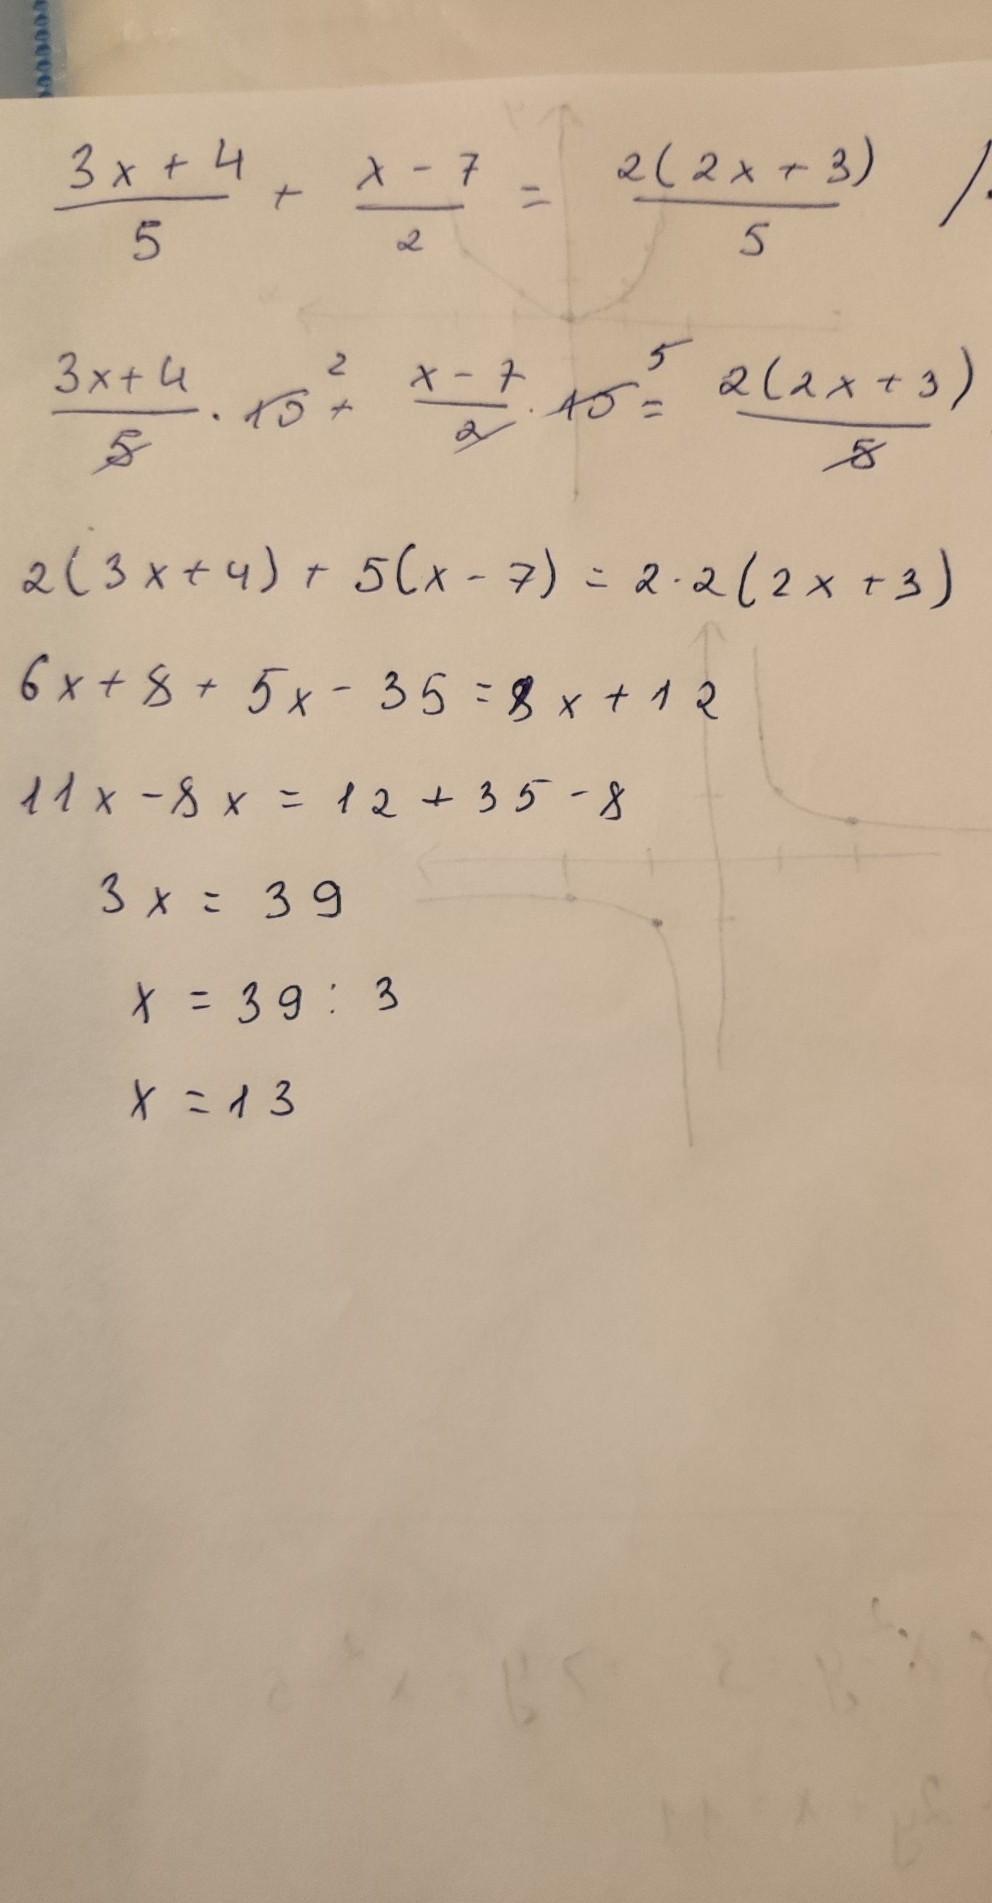 (3x + 4)/5 + (x - 7)/2 = 2(2x + 3)/5 /·
(3x + 4)/5 · 10 ² + (x - 7)/2 · 10 ⁵ = 2(2x + 3)/5
2(3x + 4) + 5(x - 7) = 2·2(2x + 3)
6x + 8 + 5x - 35 = 8x + 12
11x - 8x = 12 + 35 - 8
3x = 39
x = 39 : 3
x = 13